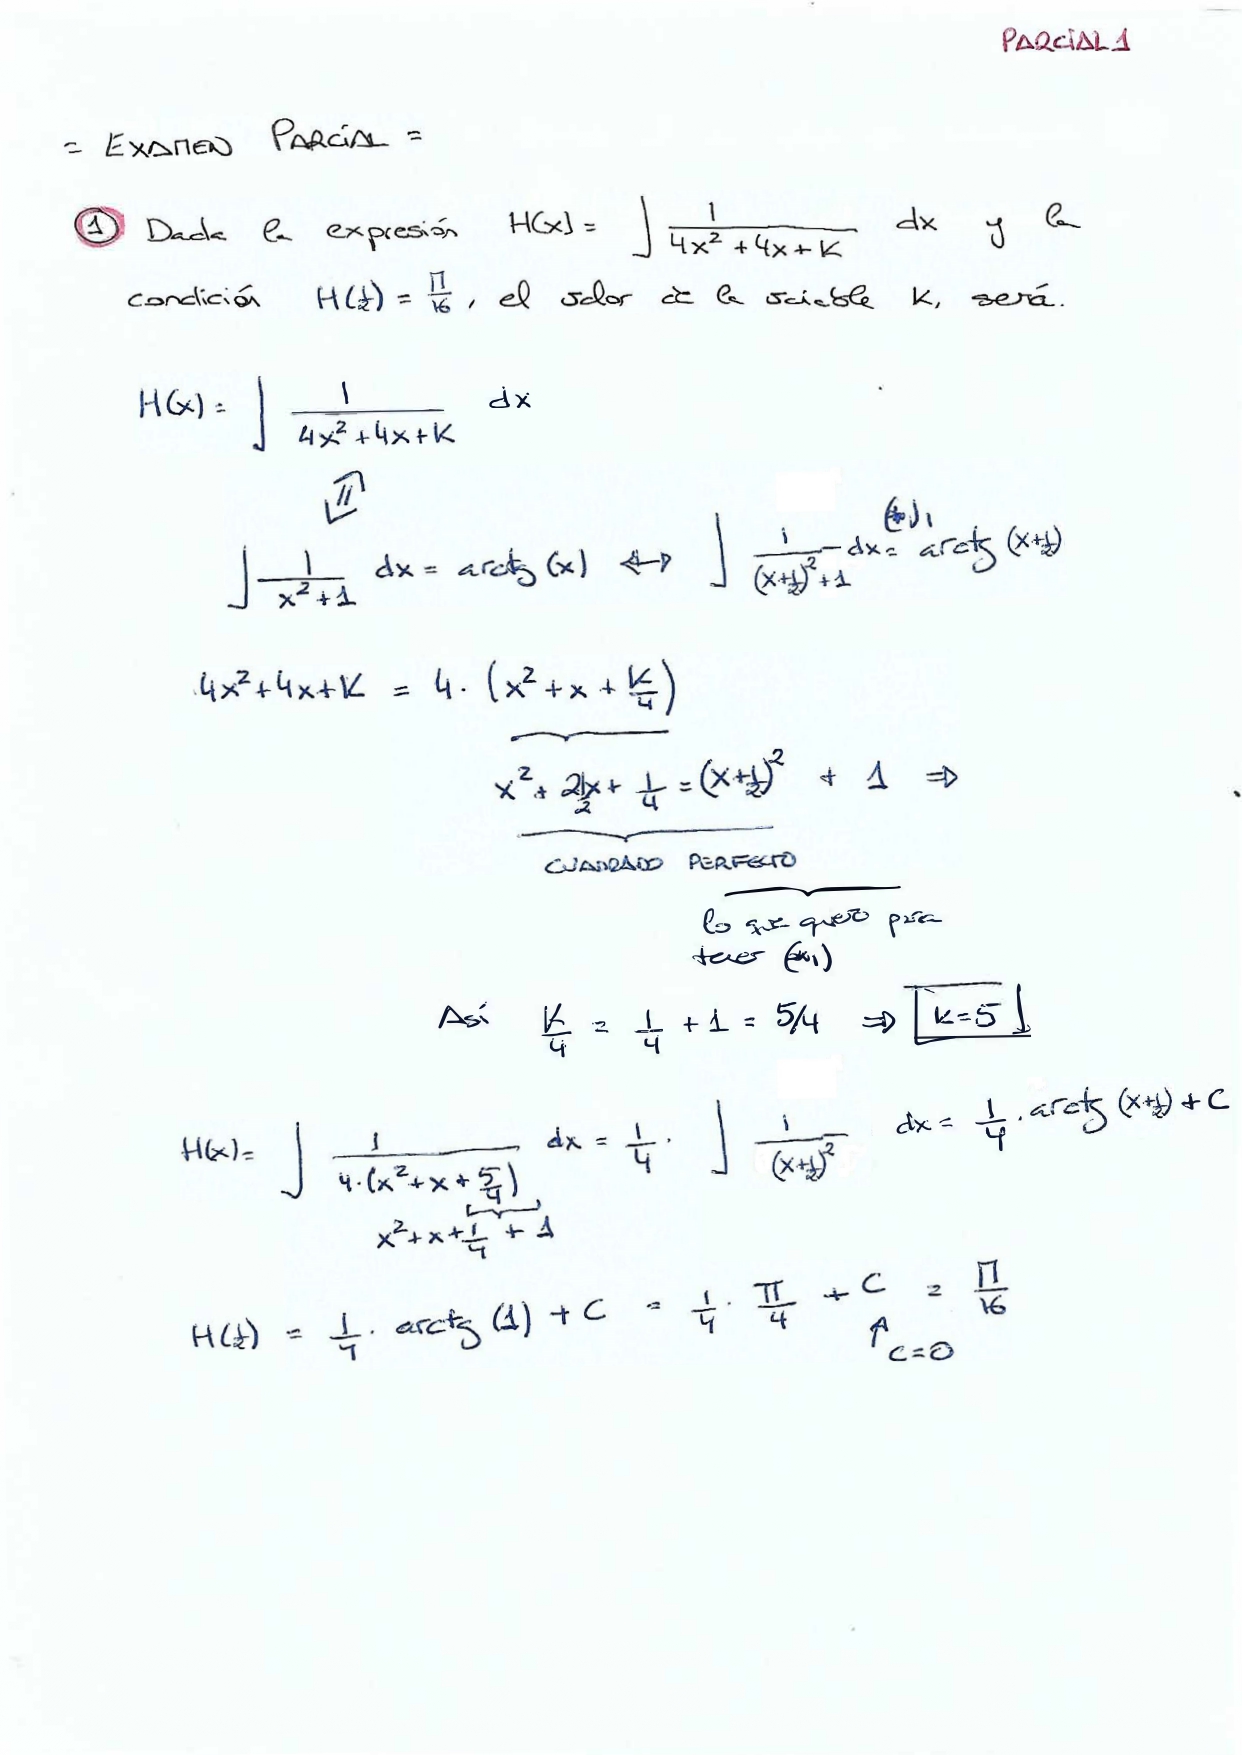 PARCIAL 1
= EXAMEN PARCIAL =
① Dada la expresión H(x) = ∫ 1/(4x²+4x+K) dx y la
condición H(½) = Π/16, el valor de la variable K, será.
H(x) = ∫ 1/(4x²+4x+K) dx
∫ 1/(x²+1) dx = arctg (x) ↔ ∫ 1/((x+½)²+1) dx = arctg (x+½) (*)₁
4x²+4x+K = 4·(x²+x+K/4)
x²+2·½x+1/4 = (x+½)² + 1 ⇒
CUADRADO PERFECTO
lo que quiero para
tener (*₁)
Así K/4 = 1/4 + 1 = 5/4 ⇒ K=5
H(x) = ∫ 1/(4·(x²+x+5/4)) dx = 1/4 · ∫ 1/(x+½)² dx = 1/4 · arctg (x+½) + C
x²+x+1/4 + 1
H(½) = 1/4 · arctg (1) + C = 1/4 · π/4 + C = Π/16
↑ C=0